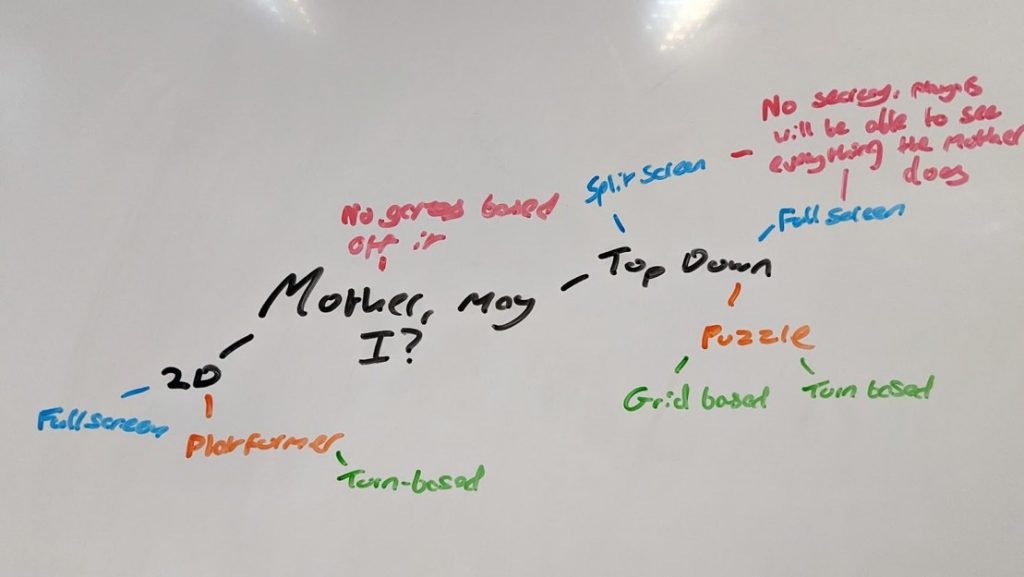 No secrecy, players
will be able to see
everything the Mother
does
Split screen
Full screen
No games based
off it
Top Down
Mother, may
I?
Puzzle
2D
Grid based
Turn based
Full screen
Platformer
Turn-based